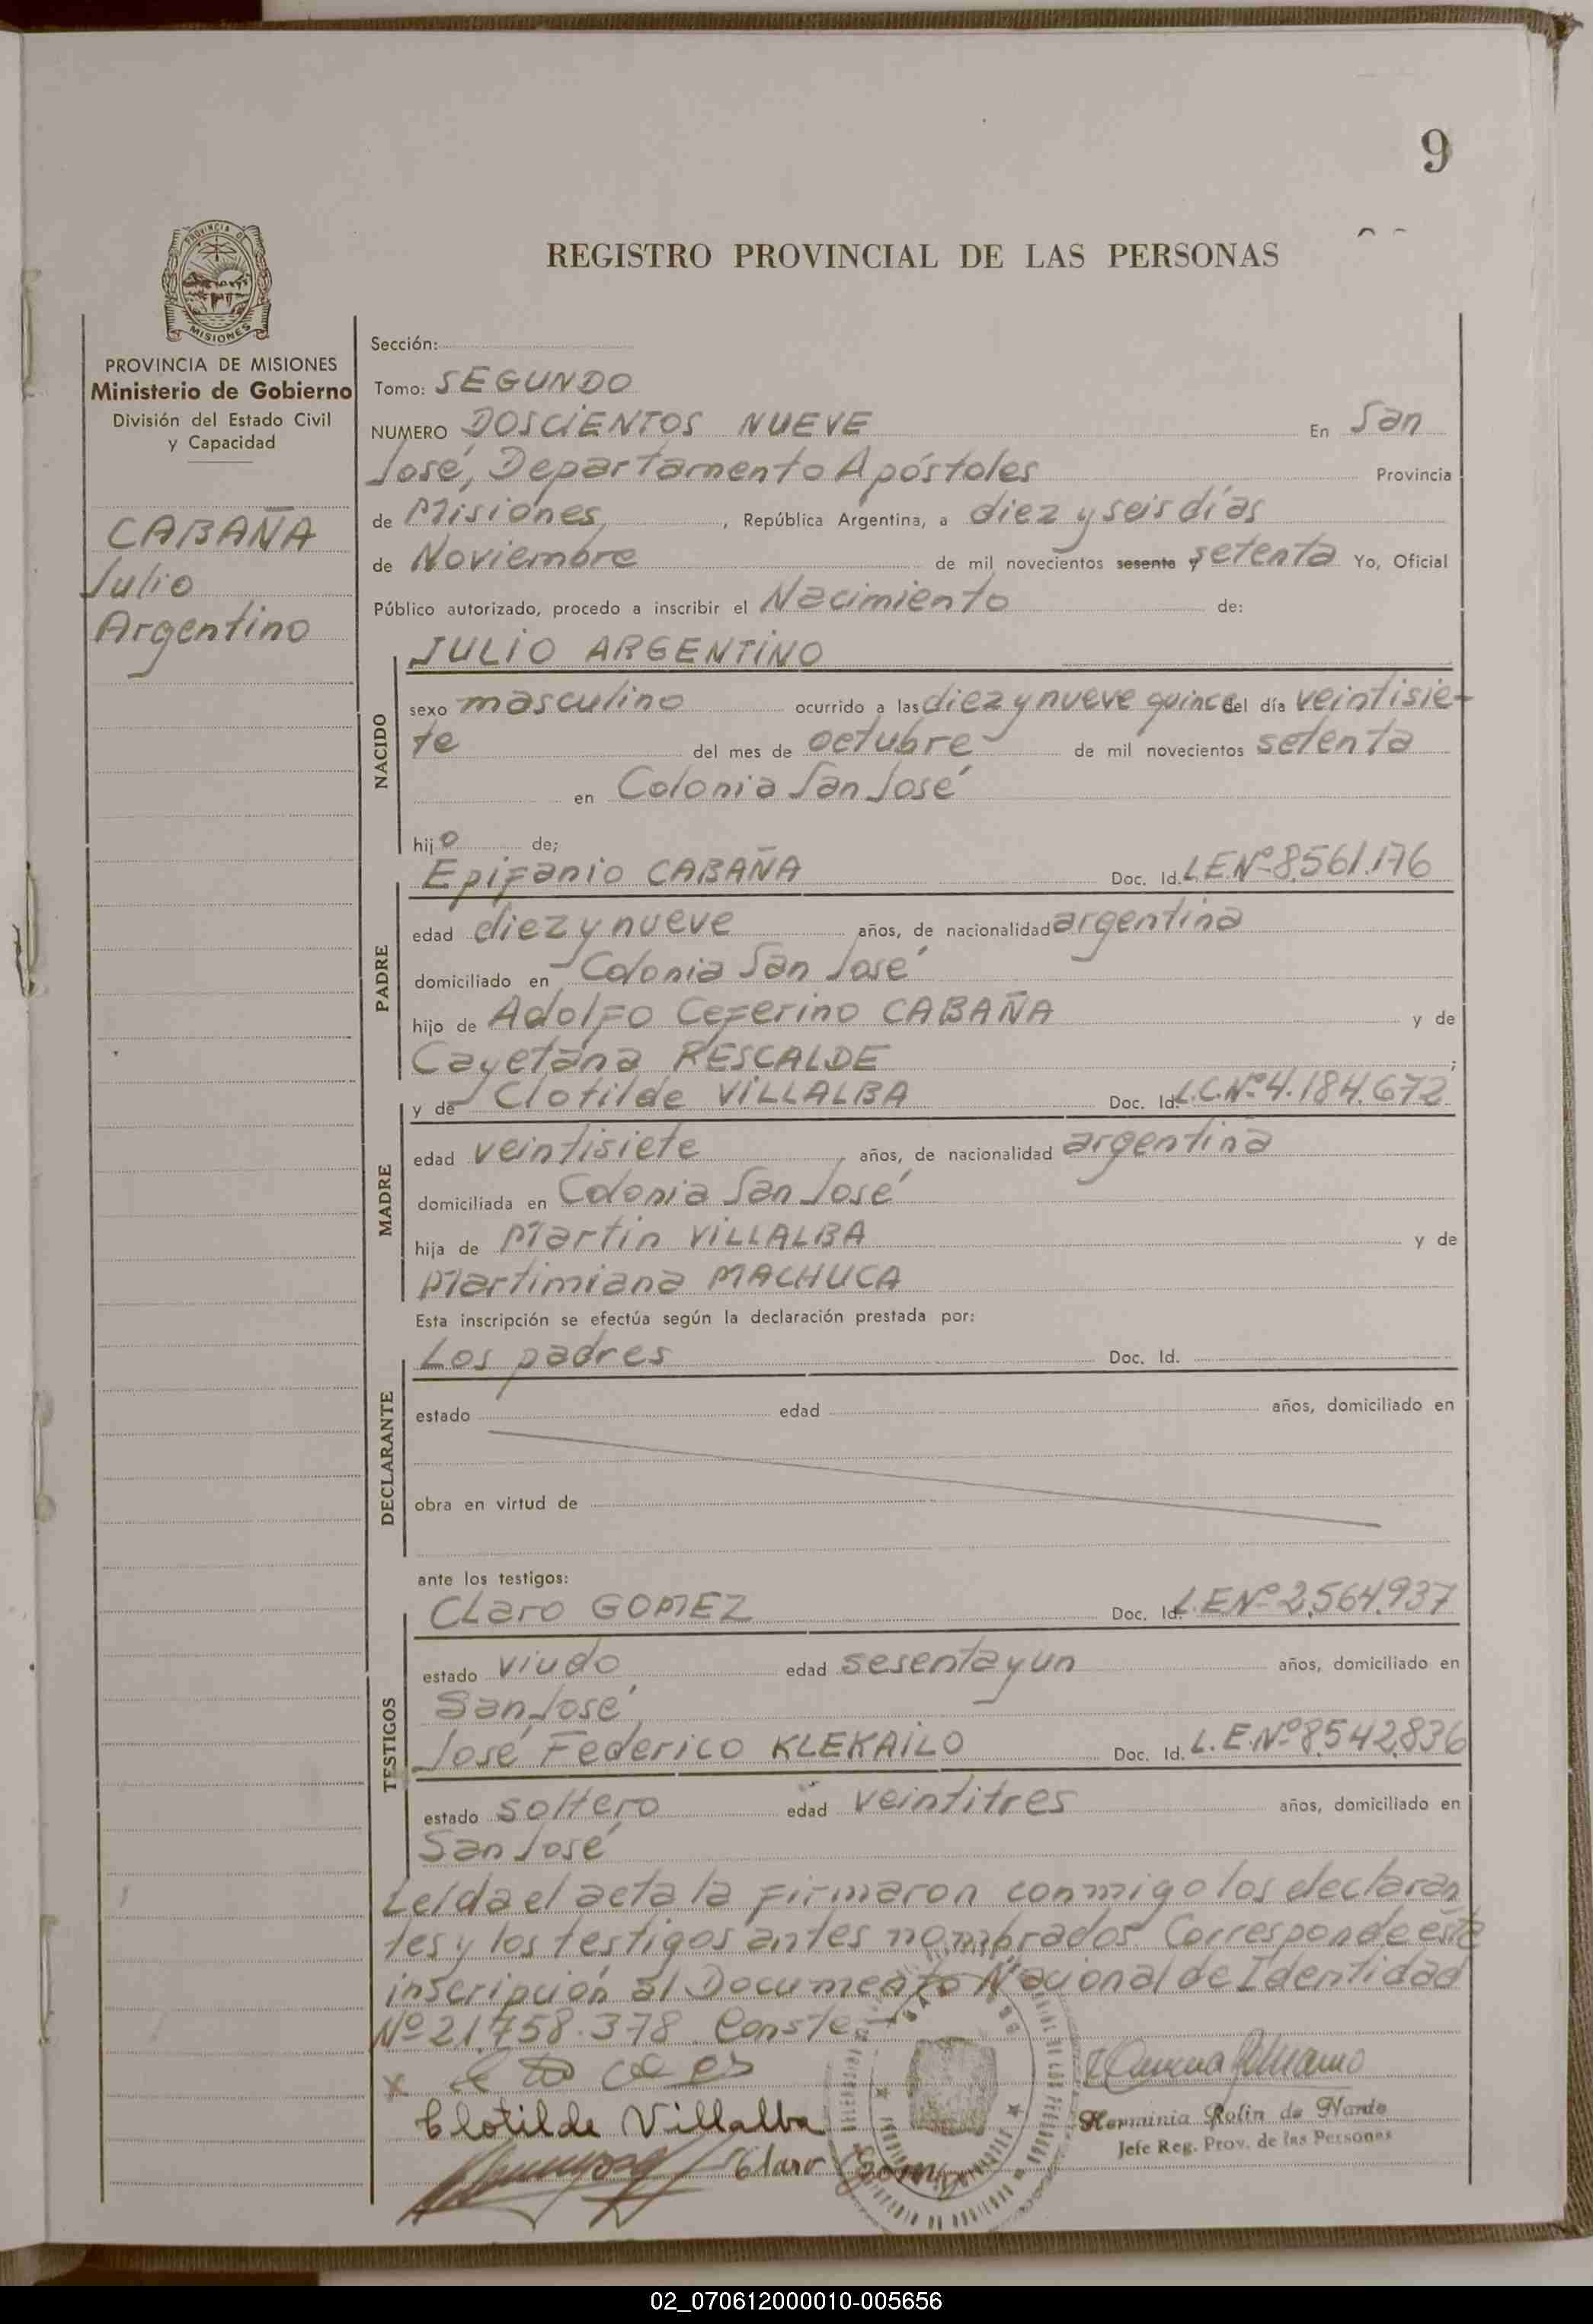 9
REGISTRO PROVINCIAL DE LAS PERSONAS
PROVINCIA DE MISIONES
Ministerio de Gobierno
División del Estado Civil
y Capacidad
CABAÑA
Julio
Argentino
Sección:
Tomo: SEGUNDO
NUMERO DOSCIENTOS NUEVE En San
José, Departamento Apóstoles Provincia
de Misiones, , República Argentina, a diez y seis días
de Noviembre de mil novecientos sesenta y setenta Yo, Oficial
Público autorizado, procedo a inscribir el Nacimiento de:
NACIDO
JULIO ARGENTINO
sexo masculino ocurrido a las diez y nueve quince del día veintisie-
te del mes de octubre de mil novecientos setenta
en Colonia San José
hijo de;
PADRE
Epifanio CABAÑA Doc. Id. L.E.Nº 8.561.176
edad diez y nueve años, de nacionalidad argentina
domiciliado en Colonia San José
hijo de Adolfo Ceferino CABAÑA y de
Cayetana RESCALDE ;
MADRE
y de Clotilde VILLALBA Doc. Id. L.C.Nº 4.184.672
edad veintisiete años, de nacionalidad argentina
domiciliada en Colonia San José
hija de Martin VILLALBA y de
Martimiana MACHUCA
Esta inscripción se efectúa según la declaración prestada por:
DECLARANTE
Los padres Doc. Id.
estado edad años, domiciliado en
obra en virtud de
ante los testigos:
TESTIGOS
Claro GOMEZ Doc. Id. L.E.Nº 2.564.937
estado viudo edad sesenta y un años, domiciliado en
San José
José Federico KLEKAILO Doc. Id. L.E.Nº 8.542.836
estado soltero edad veintitres años, domiciliado en
San José
Leída el acta la firmaron conmigo los declaran
tes y los testigos antes nombrados. Corresponde esta
inscripción al Documento Nacional de Identidad
Nº 21.758.378. Conste.-
x
Clotilde Villalba
Claro Gomez
Herminia Rolin de Nardo
Jefe Reg. Prov. de las Personas
02_070612000010-005656